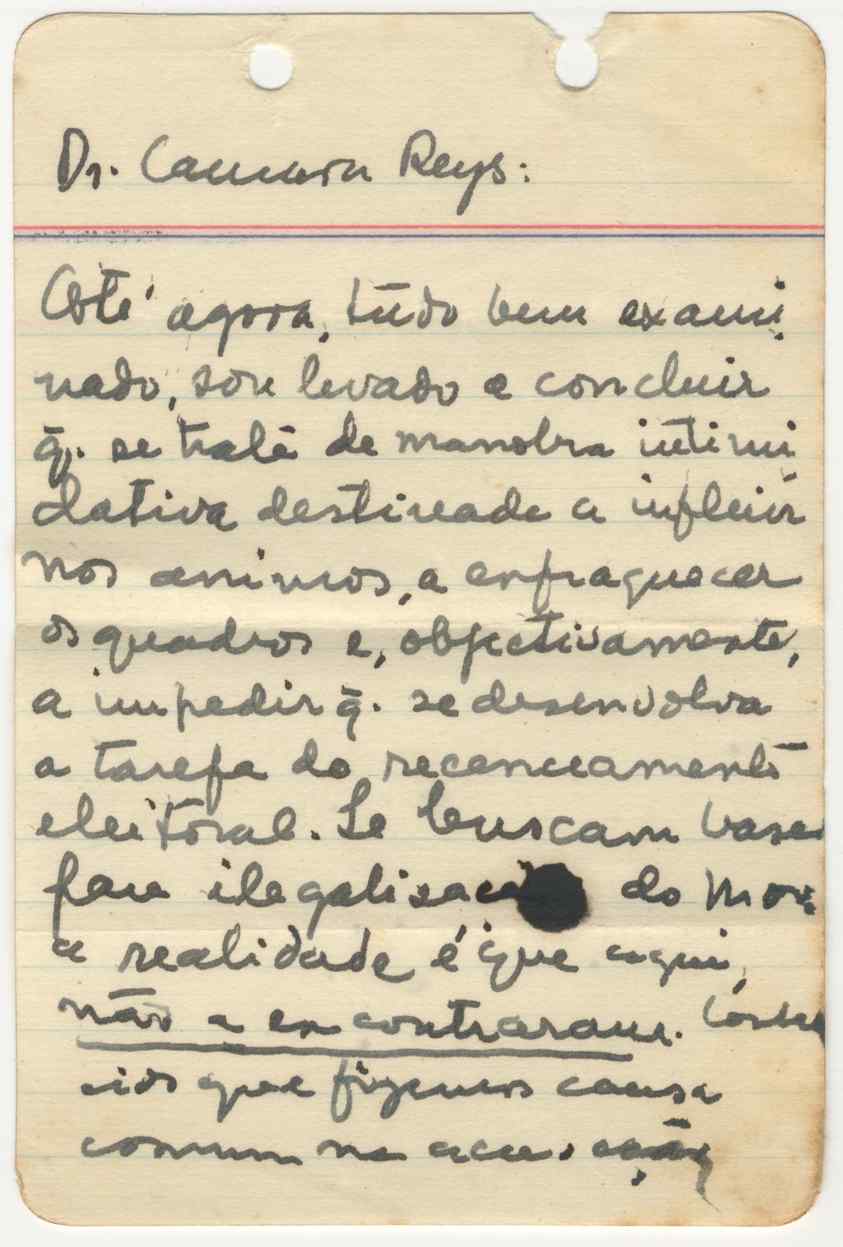 Dr. Camara Reys:
Até agora, tudo bem exami
nado, sou levado a concluir
q̄. se trata de manobra intimi
dativa destinada a influir
nos animos, a enfraquecer
os quadros e, objectivamente,
a impedir q̄. se desenvolva
a tarefa do recenceamento
eleitoral. Se buscam base
para ilegalisação do Mov.
a realidade é que aqui,
não a encontraram.
que fizemos causa
comum na